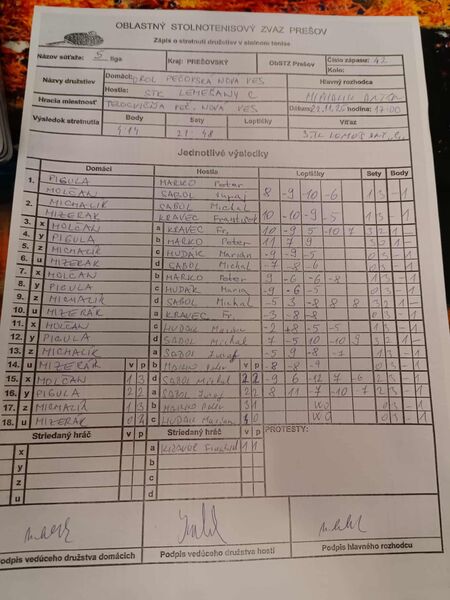 OBLASTNÝ STOLNOTENISOVÝ ZVÄZ PREŠOV
Zápis o stretnutí družstiev v stolnom tenise
Názov súťaže: 5 liga Kraj: PREŠOVSKÝ ObSTZ Prešov Číslo zápasu: 42
Kolo:
Názvy družstiev Domáci: OROL PEČOVSKÁ NOVÁ VES Hlavný rozhodca
Hostia: STK LEMEŠANY C
Hracia miestnosť TELOCVIČŇA PEČ. NOVÁ VES Dátum: 22.11.25 hodina 17:00
Výsledok stretnutia Body Sety Loptičky Víťaz
4:14 21:48 STK LEMEŠANY C
Jednotlivé výsledky
Domáci Hostia Loptičky Sety Body
1. PIGULA MARKO Peter
MOLČAN SABOL Juraj 8 -9 -10 -6 1 3 - 1
2. MICHALIK SABOL Michal
MIZERÁK KRAVEC František 10 -10 -9 -5 1 3 - 1
3. x MOLČAN a KRAVEC Fr. 10 -9 5 -10 7 3 2 1 -
4. y PIGULA b MARKO Peter 11 7 9 3 0 1 -
5. z MICHALIK c HUDÁK Marián -9 -9 -5 0 3 - 1
6. u MIZERÁK d SABOL Michal -7 -8 -6 0 3 - 1
7. x MOLČAN b MARKO Peter 9 -6 -6 -8 1 3 - 1
8. y PIGULA c HUDÁK Marián -9 -6 -5 0 3 - 1
9. z MICHALIK d SABOL Michal -5 3 -8 8 8 3 2 1 -
10. u MIZERÁK a KRAVEC Fr. -3 -8 -8 0 3 - 1
11. x MOLČAN c HUDÁK Marián -2 +8 -5 -5 1 3 - 1
12. y PIGULA d SABOL Michal 7 -5 10 -10 9 3 2 1 -
13. z MICHALIK a SABOL Juraj -5 9 -8 -7 1 3 - 1
14. u MIZERÁK v p b MARKO Peter v p -8 -8 -9 0 3 - 1
15. x MOLČAN 1 3 d SABOL Michal 2 2 -9 6 -12 7 -6 2 3 - 1
16. y PIGULA 2 2 a SABOL Juraj 2 2 8 11 -7 -10 -7 2 3 - 1
17. z MICHALIK 1 3 b MARKO Peter 3 1 WO 0 3 - 1
18. u MIZERÁK 0 4 c HUDÁK Marián 4 0 WO 0 3 - 1
Striedaný hráč v p Striedaný hráč v p PROTESTY:
x a KRAVEC František 1 1
y b
z c
u d
Podpis vedúceho družstva domácich Podpis vedúceho družstva hostí Podpis hlavného rozhodcu